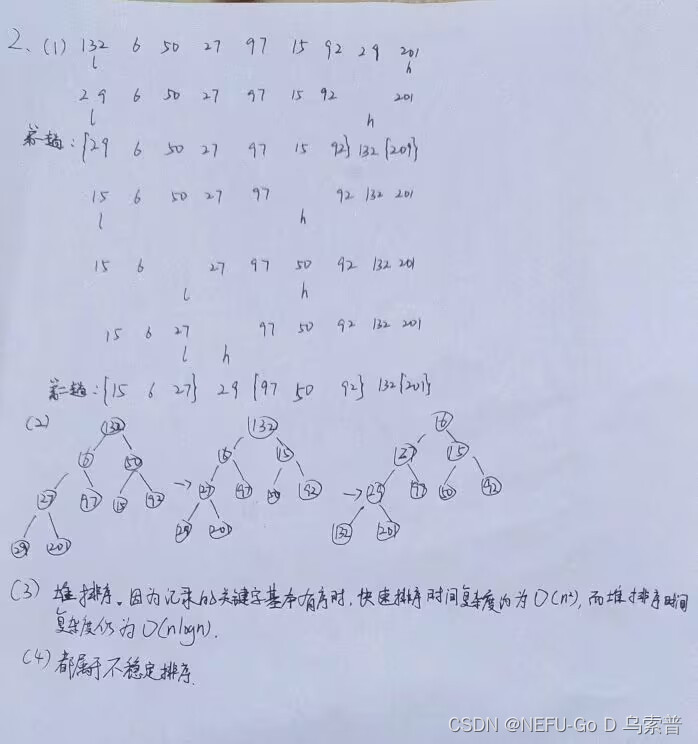 2、(1) 132 6 50 27 97 15 92 29 201
l h
29 6 50 27 97 15 92 201
l h
第一趟：{29 6 50 27 97 15 92} 132 {209}
15 6 50 27 97 92 132 201
l h
15 6 27 97 50 92 132 201
l h
15 6 27 97 50 92 132 201
l h
第二趟：{15 6 27} 29 {97 50 92} 132 {201}
(2)
132 132 6
6 50 6 15 27 15
27 97 15 92 → 27 97 50 92 → 29 97 50 92
29 201 29 201 132 201
(3) 堆排序。因为记录的关键字基本有序时，快速排序时间复杂度为O(n²)，而堆排序时间
复杂度仍为O(nlogn)．
(4) 都属于不稳定排序．
CSDN @NEFU-Go D 乌索普